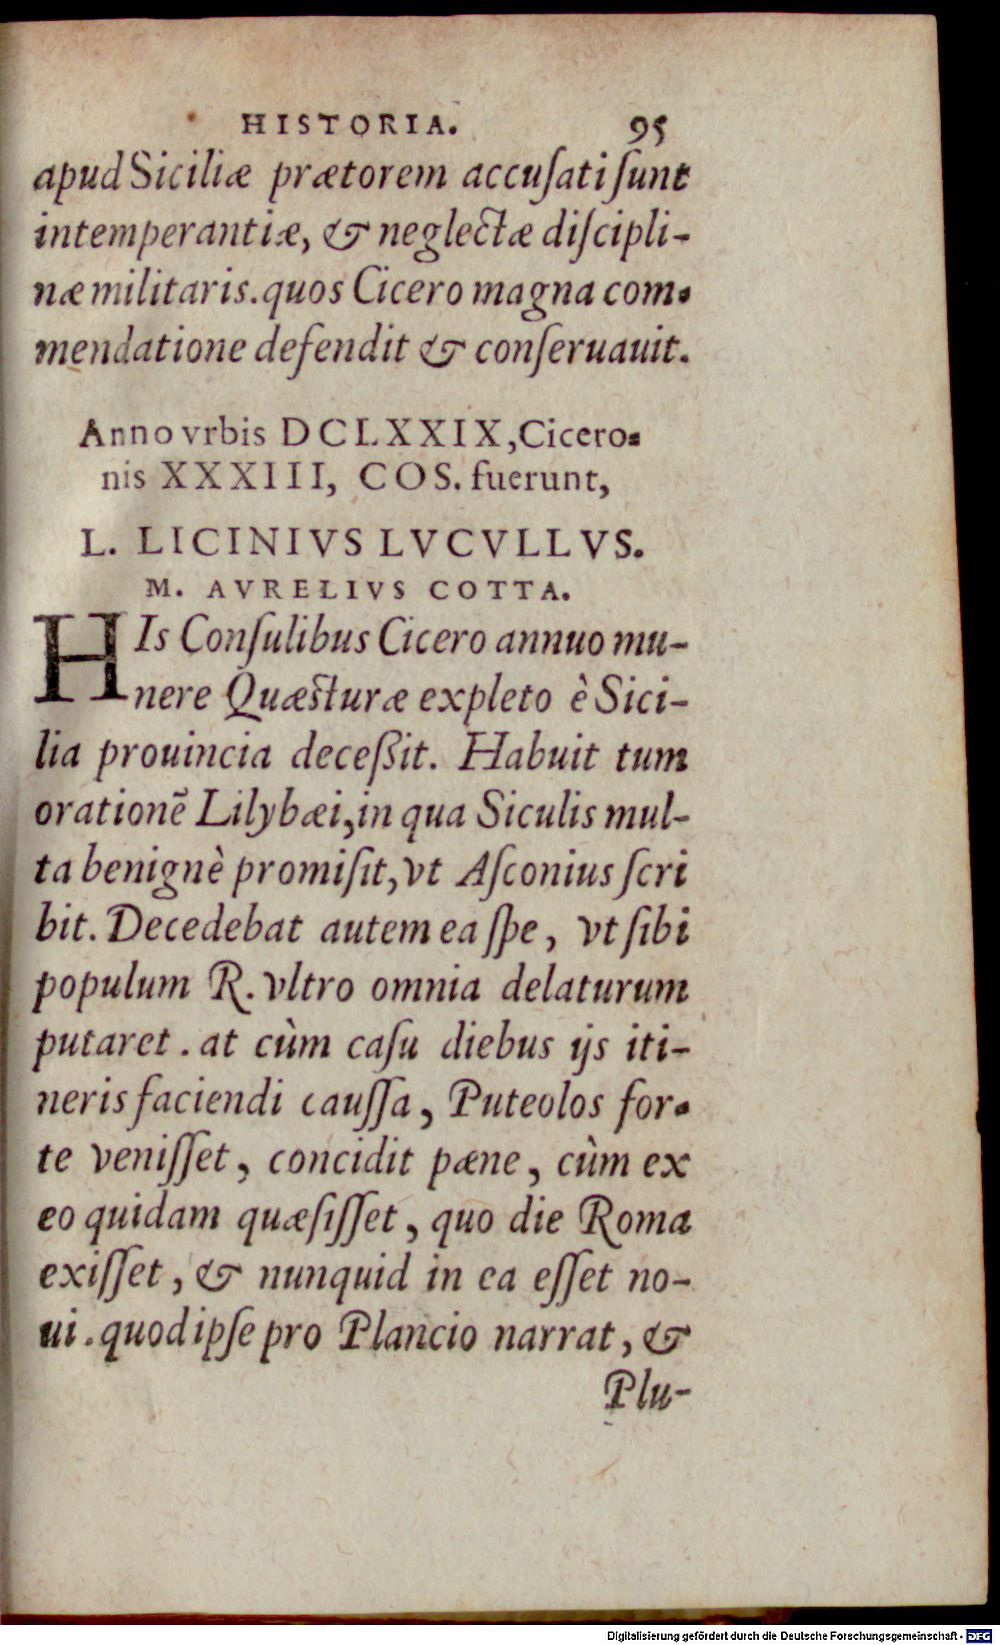 HISTORIA. 95
apud Siciliæ prætorem accuſati ſunt
intemperantiæ, & neglectæ diſcipli-
næ militaris. quos Cicero magna com-
mendatione defendit & conſeruauit.
Anno vrbis DCLXXIX, Cicero-
nis XXXIII, COS. fuerunt,
L. LICINIVS LVCVLLVS.
M. AVRELIVS COTTA.
HIs Conſulibus Cicero annuo mu-
nere Quæsturæ expleto è Sici-
lia prouincia deceßit. Habuit tum
orationē Lilybæi, in qua Siculis mul-
ta benignè promiſit, vt Aſconius ſcri
bit. Decedebat autem ea ſpe, vt ſibi
populum R. vltro omnia delaturum
putaret. at cùm caſu diebus ijs iti-
neris faciendi cauſſa, Puteolos for-
te veniſſet, concidit pæne, cùm ex
eo quidam quæſiſſet, quo die Roma
exiſſet, & nunquid in ea eſſet no-
ui. quod ipſe pro Plancio narrat, &
Plu-
Digitalisierung gefördert durch die Deutsche Forschungsgemeinschaft - DFG